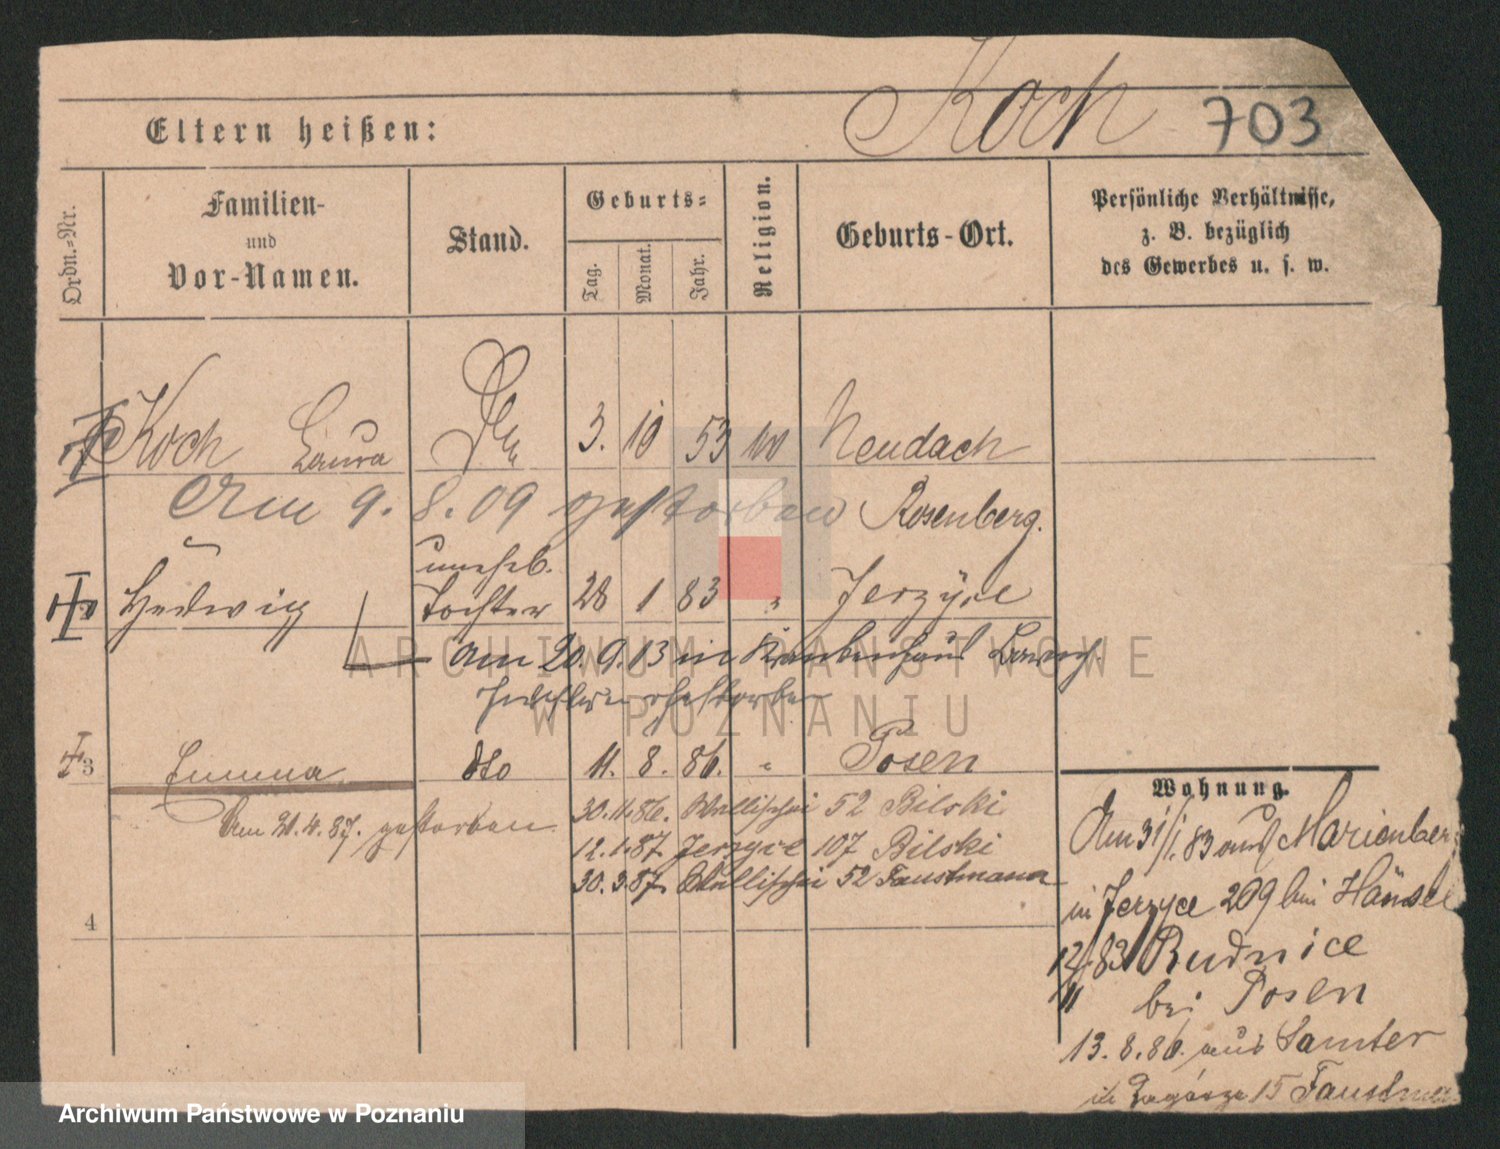 Koch 703
Eltern heißen:
Ordn.=Nr.
Familien-
und
Vor-Namen.
Stand.
Geburts=
Tag.
Monat.
Jahr.
Religion.
Geburts-Ort.
Persönliche Verhältnisse,
z. B. bezüglich
des Gewerbes u. s. w.
Koch Laura 3. 10 53 Neudach
Am 9. 8. 09 gestorben Rosenberg.
unehel.
Hedwig Tochter 28 1 83 " Jerzyce
Am 20. 9. 13 in Krankenhaus
gestorben
3 Emma dto 11. 8. 86. " Posen
Am 21. 4. 87. gestorben
30. 11. 86. Wallischei 52 Bilski
12. 1. 87. Jerzyce 107 Bilski
30. 3. 87. Wallischei 52 Faustmann
4
Wohnung.
Am 31/1. 83 aus Marienberg
in Jerzyce 209 bei Hänsel
12/11 83 Rudnice
bei Posen
13. 8. 86. aus Samter
in Zagórze 15
ARCHIWUM PAŃSTWOWE
W POZNANIU
Archiwum Państwowe w Poznaniu